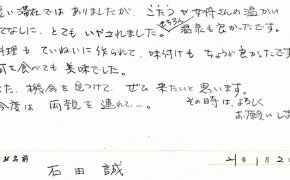 短い滞在では ありましたが、こたつ や女将さんの温かい
おもてなしに、とても いやされました。もちろん 温泉も良かったです。
料理も ていねいに作られてて、味付けも ちょうど良かったです
何を食べても 美味でした。
また、機会を見つけて、ぜひ 来たいと思います。
今度は 両親を 連れて…。その時は、よろしく
お願いしま
お名前
石田 誠
21年1月2